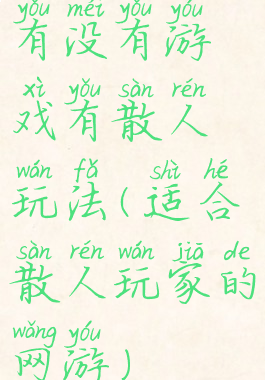 yǒu méi yǒu yóu
有没有游
xì yǒu sàn rén
戏有散人
wán fǎ shì hé
玩法(适合
sàn rén wán jiā de
散人玩家的
wǎng yóu
网游)